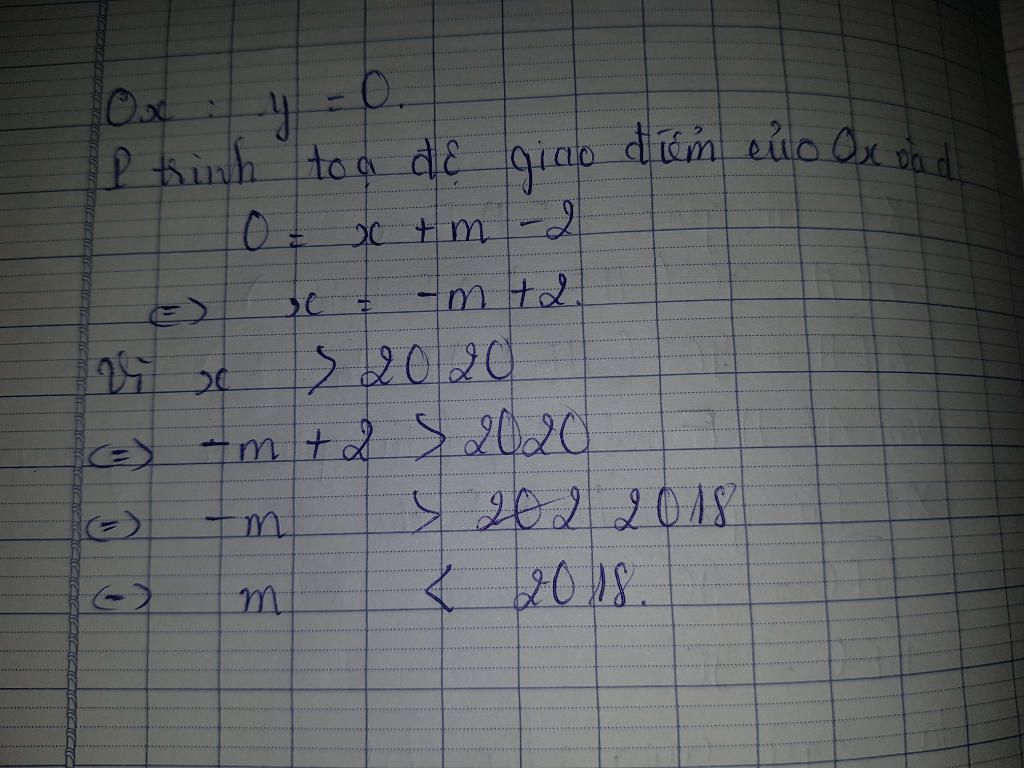 Ox : y = 0.
P trình toạ độ giao điểm của Ox và d
0 = x + m - 2
<=> x = -m + 2.
Vì x > 2020
<=> -m + 2 > 2020
<=> -m > 202 2018
<=> m < 2018.